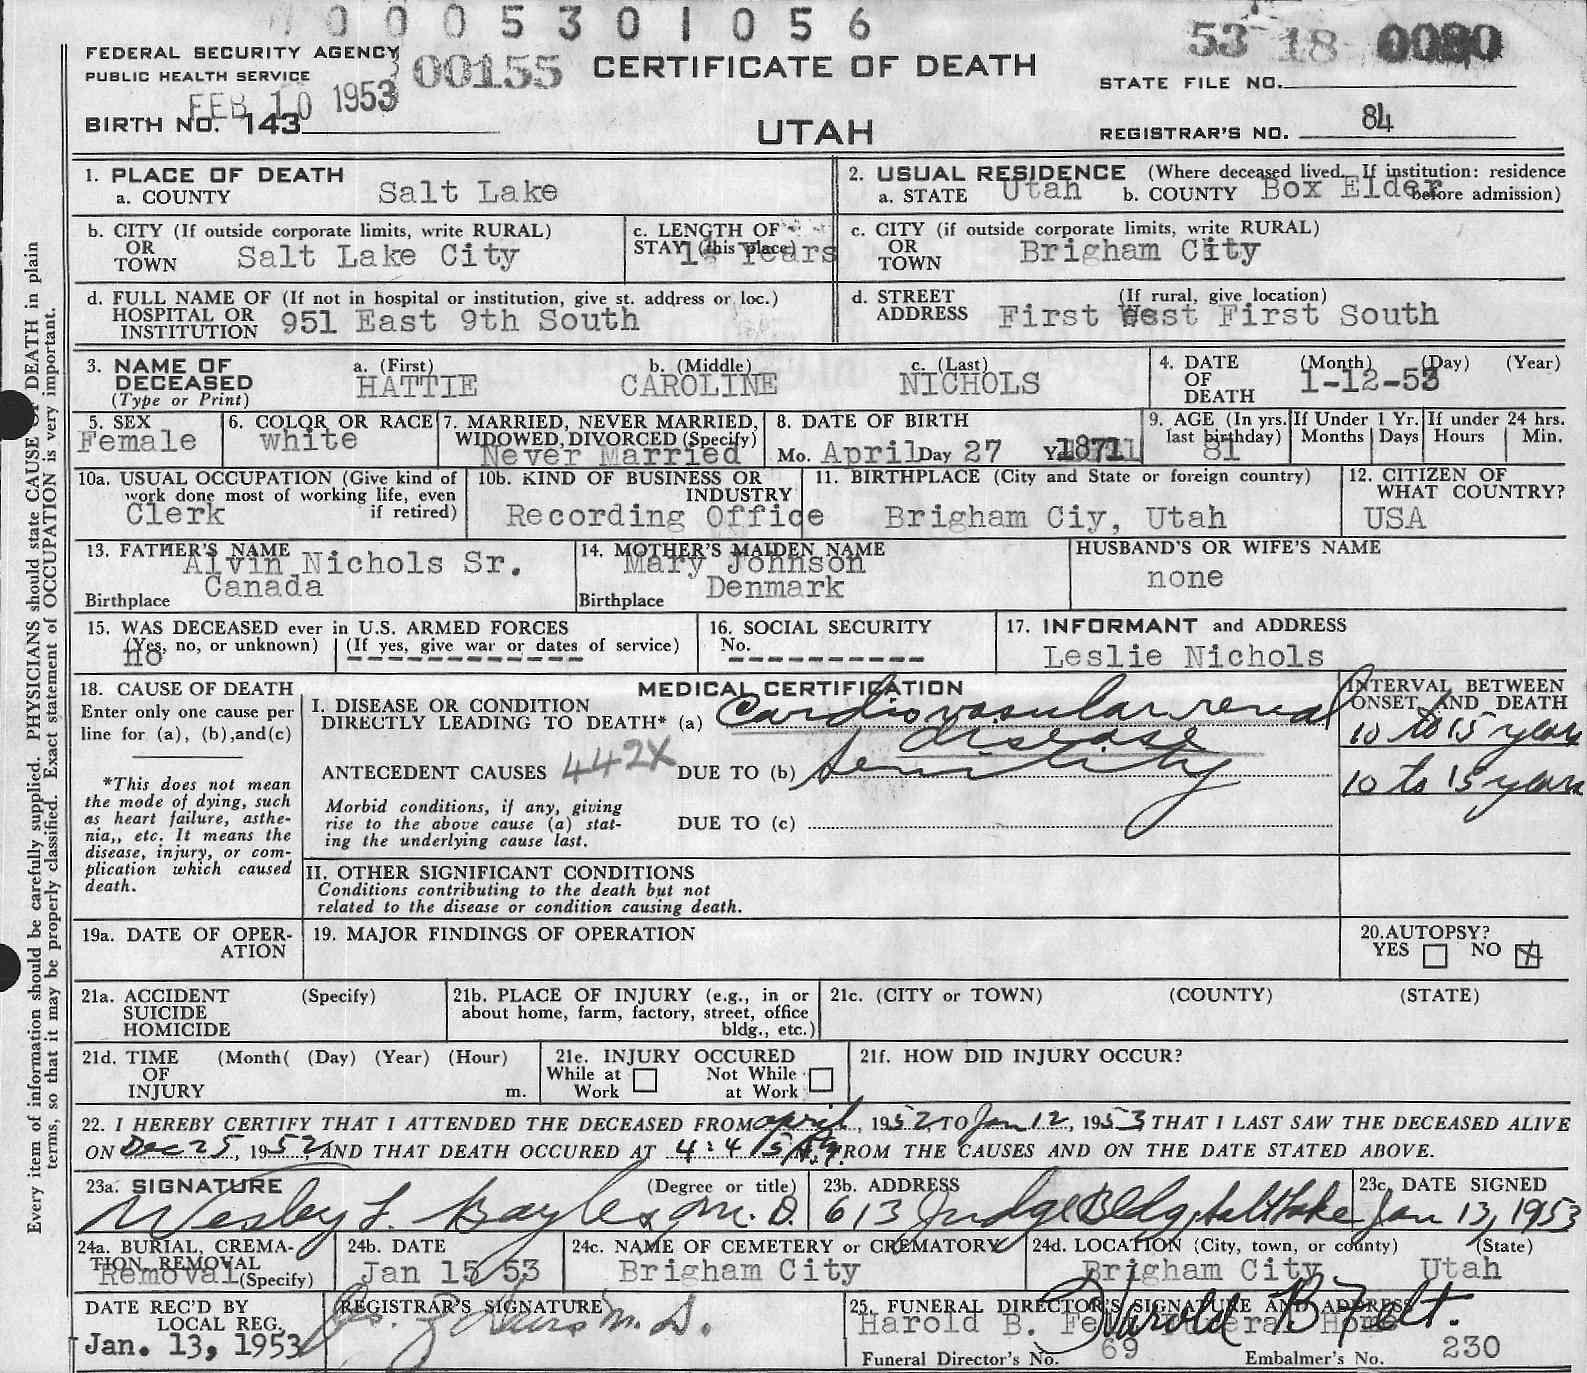 0005301056
FEDERAL SECURITY AGENCY
PUBLIC HEALTH SERVICE
00155
CERTIFICATE OF DEATH
53 18
STATE FILE NO.
FEB 10 1953
BIRTH NO. 143
UTAH
REGISTRAR'S NO. 84
1. PLACE OF DEATH
a. COUNTY Salt Lake
2. USUAL RESIDENCE (Where deceased lived. If institution: residence before admission)
a. STATE Utah b. COUNTY Box Elder
b. CITY (If outside corporate limits, write RURAL)
OR
TOWN Salt Lake City
c. LENGTH OF
STAY (this place) Years
c. CITY (if outside corporate limits, write RURAL)
OR
TOWN Brigham City
d. FULL NAME OF (If not in hospital or institution, give st. address or loc.)
HOSPITAL OR
INSTITUTION 951 East 9th South
d. STREET (If rural, give location)
ADDRESS First West First South
3. NAME OF
DECEASED
(Type or Print)
a. (First) b. (Middle) c. (Last)
HATTIE CAROLINE NICHOLS
4. DATE (Month) (Day) (Year)
OF
DEATH 1-12-53
5. SEX
Female
6. COLOR OR RACE
white
7. MARRIED, NEVER MARRIED,
WIDOWED, DIVORCED (Specify)
Never Married
8. DATE OF BIRTH
Mo. April Day 27 1871
9. AGE (In yrs. last birthday)
81
If Under 1 Yr.
Months Days
If under 24 hrs.
Hours Min.
10a. USUAL OCCUPATION (Give kind of
work done most of working life, even
if retired)
Clerk
10b. KIND OF BUSINESS OR
INDUSTRY
Recording Office
11. BIRTHPLACE (City and State or foreign country)
Brigham Ciy, Utah
12. CITIZEN OF
WHAT COUNTRY?
USA
13. FATHER'S NAME
Alvin Nichols Sr.
Birthplace Canada
14. MOTHER'S MAIDEN NAME
Mary Johnson
Birthplace Denmark
HUSBAND'S OR WIFE'S NAME
none
15. WAS DECEASED ever in U.S. ARMED FORCES
(Yes, no, or unknown) (If yes, give war or dates of service)
no -------------
16. SOCIAL SECURITY
No.
----------
17. INFORMANT and ADDRESS
Leslie Nichols
18. CAUSE OF DEATH
Enter only one cause per
line for (a), (b),and(c)
*This does not mean
the mode of dying, such
as heart failure, asthe-
nia,, etc. It means the
disease, injury, or com-
plication which caused
death.
MEDICAL CERTIFICATION
I. DISEASE OR CONDITION
DIRECTLY LEADING TO DEATH* (a) Cardiovascular renal
disease
ANTECEDENT CAUSES 442X DUE TO (b) Senility
Morbid conditions, if any, giving
rise to the above cause (a) stat-
ing the underlying cause last.
DUE TO (c)
INTERVAL BETWEEN
ONSET AND DEATH
10 to 15 years
10 to 15 years
II. OTHER SIGNIFICANT CONDITIONS
Conditions contributing to the death but not
related to the disease or condition causing death.
19a. DATE OF OPER-
ATION
19. MAJOR FINDINGS OF OPERATION
20.AUTOPSY?
YES NO X
21a. ACCIDENT (Specify)
SUICIDE
HOMICIDE
21b. PLACE OF INJURY (e.g., in or
about home, farm, factory, street, office
bldg., etc.)
21c. (CITY or TOWN) (COUNTY) (STATE)
21d. TIME (Month( (Day) (Year) (Hour)
OF
INJURY m.
21e. INJURY OCCURED
While at Work Not While at Work
21f. HOW DID INJURY OCCUR?
22. I HEREBY CERTIFY THAT I ATTENDED THE DECEASED FROM april, 1952 TO Jan 12, 1953 THAT I LAST SAW THE DECEASED ALIVE
ON Dec 25, 1952 AND THAT DEATH OCCURED AT 4:45 FROM THE CAUSES AND ON THE DATE STATED ABOVE.
23a. SIGNATURE (Degree or title)
Wesley F. Bayles M.D.
23b. ADDRESS
613 Judge Bldg, Salt Lake
23c. DATE SIGNED
Jan 13, 1953
24a. BURIAL, CREMA-
TION, REMOVAL
Removal (Specify)
24b. DATE
Jan 15 53
24c. NAME OF CEMETERY or CREMATORY
Brigham City
24d. LOCATION (City, town, or county) (State)
Brigham City Utah
DATE REC'D BY
LOCAL REG.
Jan. 13, 1953
REGISTRAR'S SIGNATURE
M. D.
25. FUNERAL DIRECTOR'S SIGNATURE AND ADDRESS
Harold B. Felt Funeral Home
Harold B Felt.
Funeral Director's No. 69 Embalmer's No. 230
Every item of information should be carefully supplied. PHYSICIANS should state CAUSE OF DEATH in plain
terms, so that it may be properly classified. Exact statement of OCCUPATION is very important.